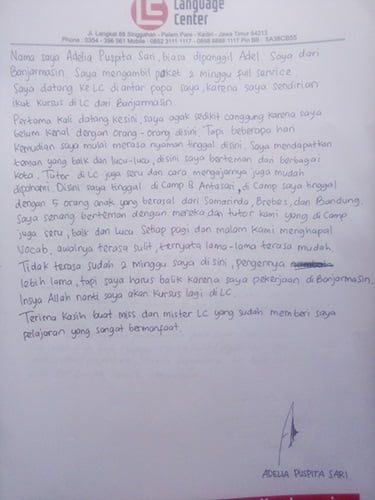 Language
Center
Jl. Langkat 88 Singgahan - Palem Pare - Kediri - Jawa Timur 64213
Phone : 0354 - 396 561 Mobile : 0852 3111 1117 - 0856 8888 1117 Pin BB : 5A38CB55
Nama saya Adelia Puspita Sari, biasa dipanggil Adel. Saya dari
Banjarmasin. Saya mengambil paket 2 minggu full service.
Saya datang ke LC diantar papa saya, karena saya sendirian
ikut kursus di LC dari Banjarmasin.
Pertama kali datang kesini, saya agak sedikit canggung karena saya
belum kenal dengan orang-orang disini. Tapi beberapa hari
kemudian saya mulai merasa nyaman tinggal disini. Saya mendapatkan
teman yang baik dan lucu-lucu, disini saya berteman dari berbagai
kota. Tutor di LC juga seru dan cara mengajarnya juga mudah
dipahami. Disini saya tinggal di Camp 8 Antasari, di Camp saya tinggal
dengan 5 orang anak yang berasal dari Samarinda, Brebes, dan Bandung.
Saya senang berteman dengan mereka dan tutor kami yang di Camp
juga seru, baik dan lucu. Setiap pagi dan malam kami menghapal
vocab, awalnya terasa sulit, ternyata lama-lama terasa mudah.
Tidak terasa sudah 2 minggu saya disini, pengennya
lebih lama, tapi saya harus balik karena saya pekerjaan di Banjarmasin.
Insya Allah nanti saya akan kursus lagi di LC.
Terima kasih buat miss dan mister LC yang sudah memberi saya
pelajaran yang sangat bermanfaat.
ADELIA PUSPITA SARI